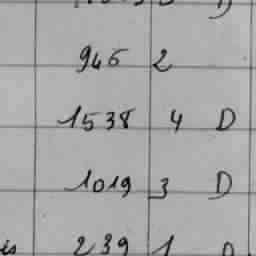 946 2
1538 4 D
1019 3 D
is 239 1 D